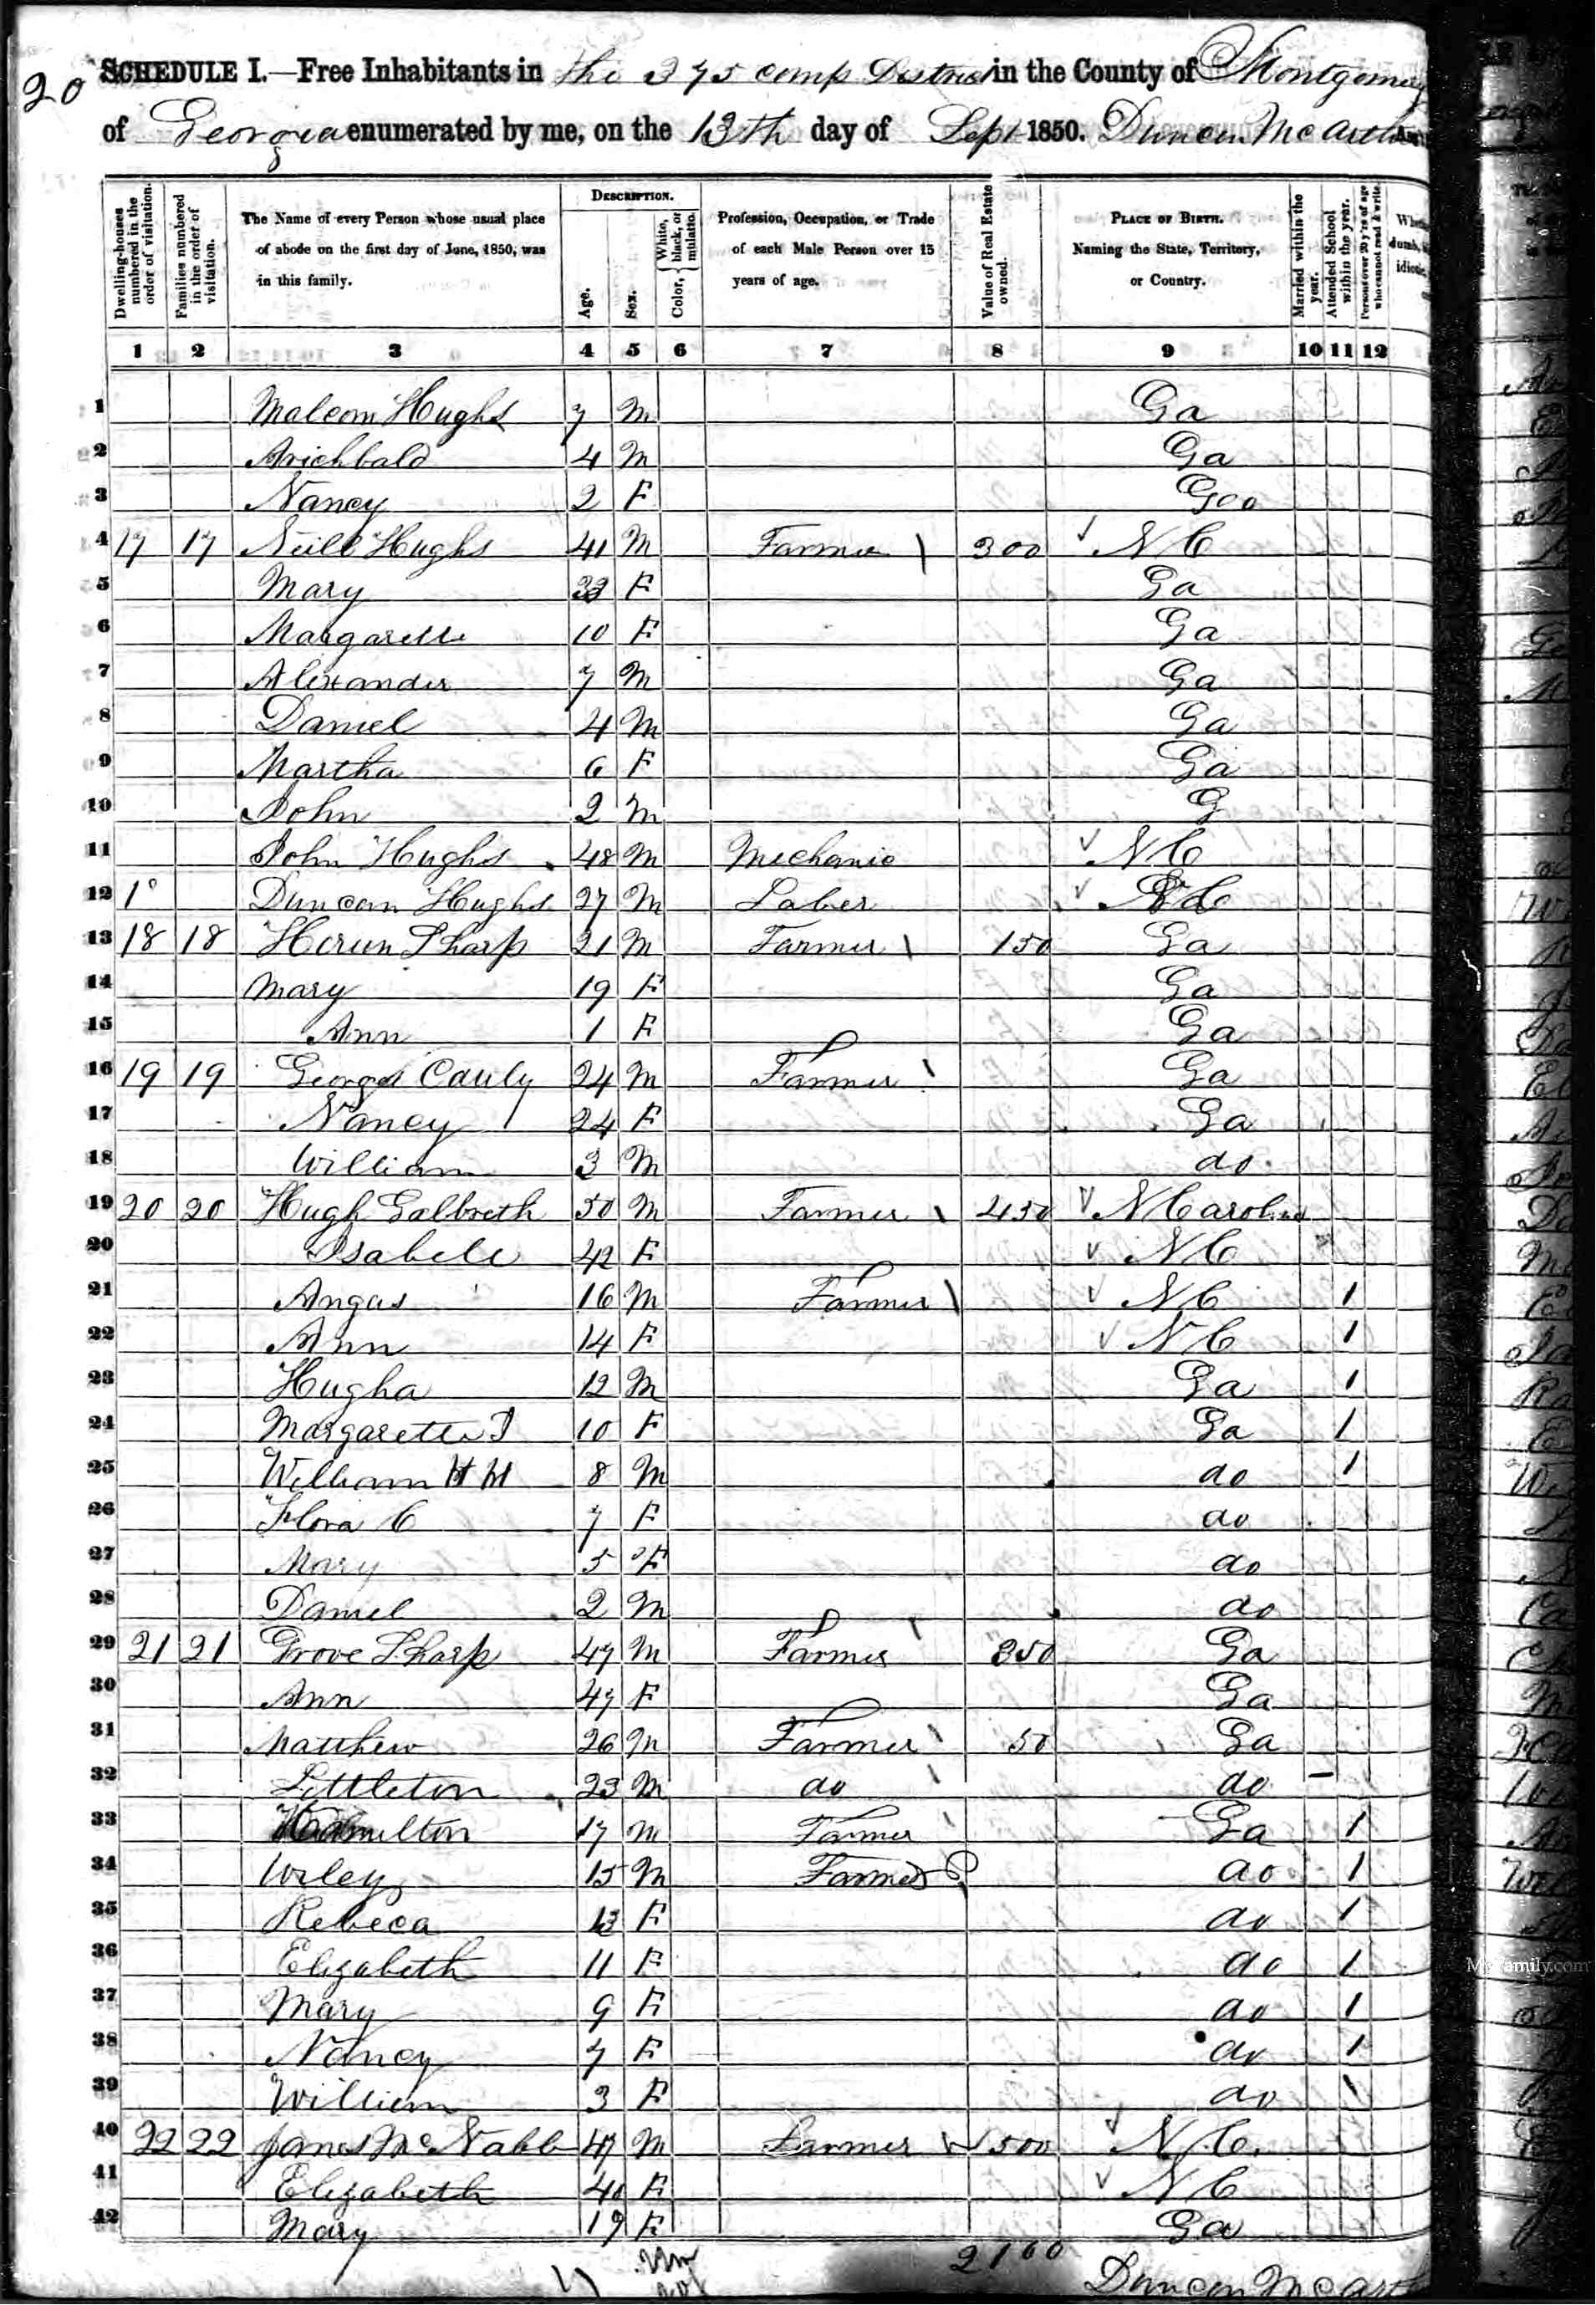 20
SCHEDULE I.—Free Inhabitants in the 275 comp District in the County of Montgomery
of Georgia enumerated by me, on the 13th day of Sept 1850. Duncan McArth
Dwelling-houses numbered in the order of visitation.
Families numbered in the order of visitation.
The Name of every Person whose usual place of abode on the first day of June, 1850, was in this family.
DESCRIPTION.
Age.
Sex.
Color, { White, black, or mulatto.
Profession, Occupation, or Trade of each Male Person over 15 years of age.
Value of Real Estate owned.
PLACE OF BIRTH. Naming the State, Territory, or Country.
Married within the year.
Attended School within the year.
Persons over 20 y'rs of age who cannot read & write.
1 2 3 4 5 6 7 8 9 10 11 12
1 Malcom Hughs 7 M Ga
2 Arichbald 4 M Ga
3 Nancy 2 F Geo
4 17 17 Neill Hughs 41 M Farmer 300 N C
5 Mary F Ga
6 Margarette 10 F Ga
7 Alexander 7 M Ga
8 Daniel 4 M Ga
9 Martha 6 F Ga
10 John 2 M G
11 John Hughs 48 M Mechanic N C
12 1° Duncan Hughs 27 M Laber N C
13 18 18 Hirum Tharp 21 M Farmer 150 Ga
14 Mary 19 F Ga
15 Ann 1 F Ga
16 19 19 George Cauly 24 M Farmer Ga
17 Nancy 24 F Ga
18 William 3 M do
19 20 20 Hugh Galbreth 50 M Farmer 450 N Carolina
20 Isabele 42 F N C
21 Angas 16 M Farmer N C 1
22 Ann 14 F N C 1
23 Hugha 12 M Ga 1
24 Margarette J 10 F Ga 1
25 William H H 8 M do 1
26 Flora C 7 F do
27 Mary 5 F do
28 Daniel 2 M do
29 21 21 Grove Tharp 47 M Farmer 350 Ga
30 Ann 47 F Ga
31 Matthew 26 M Farmer 50 Ga
32 Littleton 23 M do do
33 Hamilton 17 M Farmer Ga 1
34 Wiley 15 M Farmer do 1
35 Rebeca 13 F do 1
36 Elizabeth 11 F do 1
37 Mary 9 F do 1
38 Nancy 7 F do 1
39 William 3 F do 1
40 22 22 James McNabb 47 M Farmer 500 N C.
41 Elizabeth 40 F N C
42 Mary 19 F Ga
2160
Duncan McArth
MyFamily.com